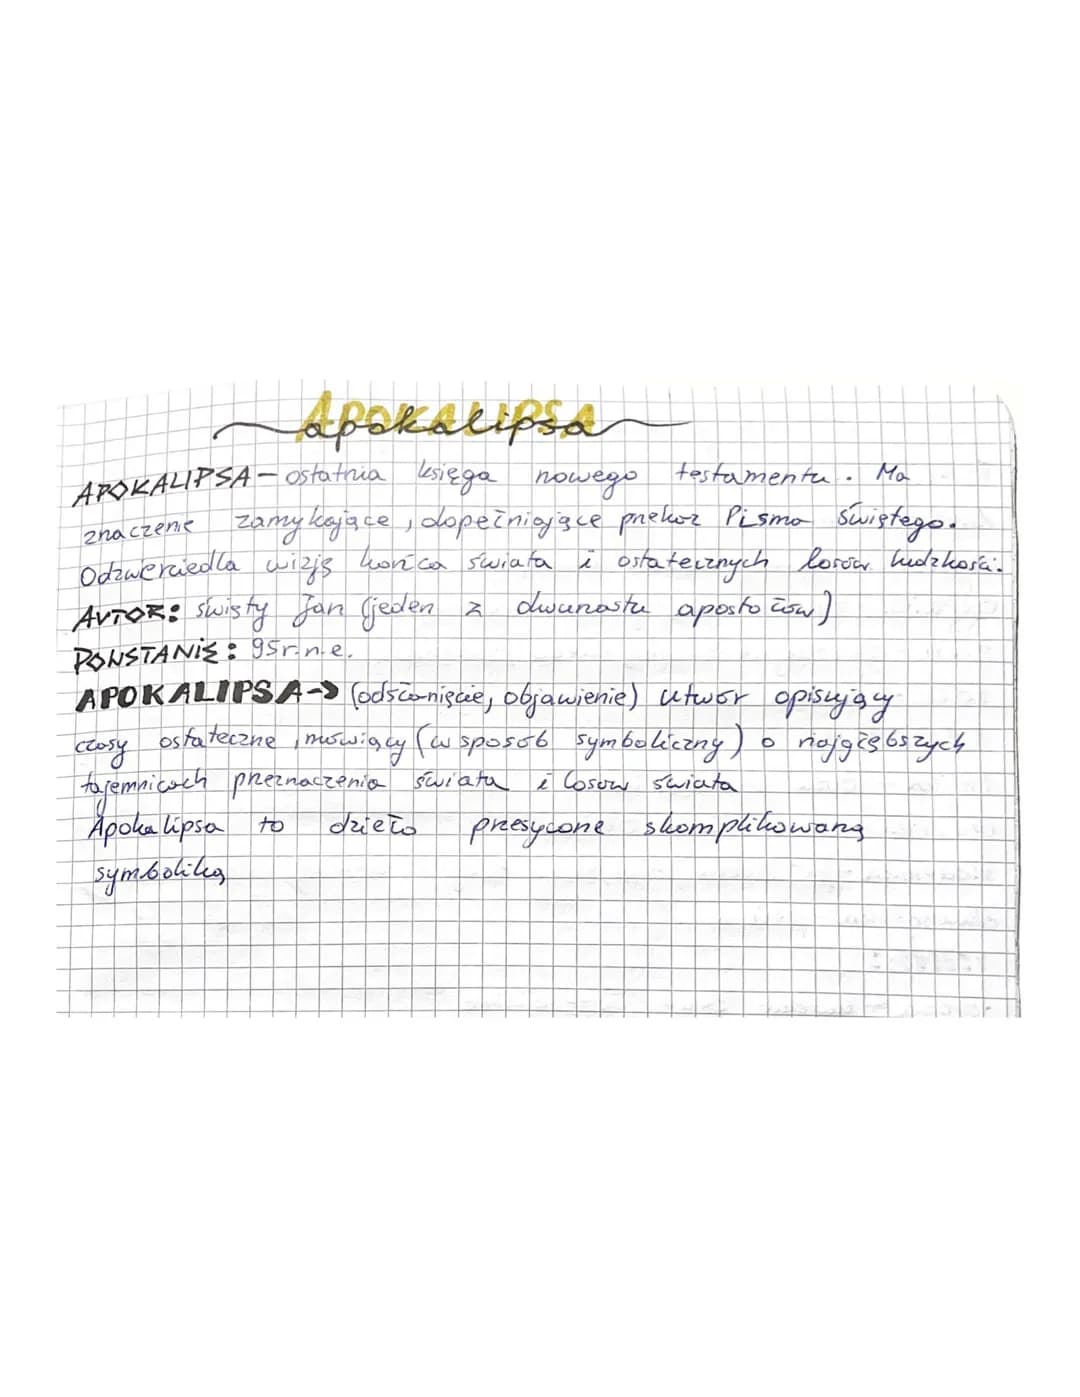 APOKALIPSA
apokalipsa
APOKALIPSA - ostatnia księga nowego testamentu. Ma
znaczenie zamykające, dopełniające przekaz Pisma Świętego.
Odzwerciedla wizję końca świata i ostatecznych losów ludzkości.
AUTOR: święty Jan (jeden z dwunastu apostołów)
POWSTANIE: 95r.n.e.
APOKALIPSA → (odsłonięcie, objawienie) utwór opisujący
czasy ostateczne, mówiący (w sposób symboliczny) o najgłębszych
tajemnicach przeznaczenia świata i losów świata
Apokalipsa to dzieło przesycone skomplikowaną
symboliką